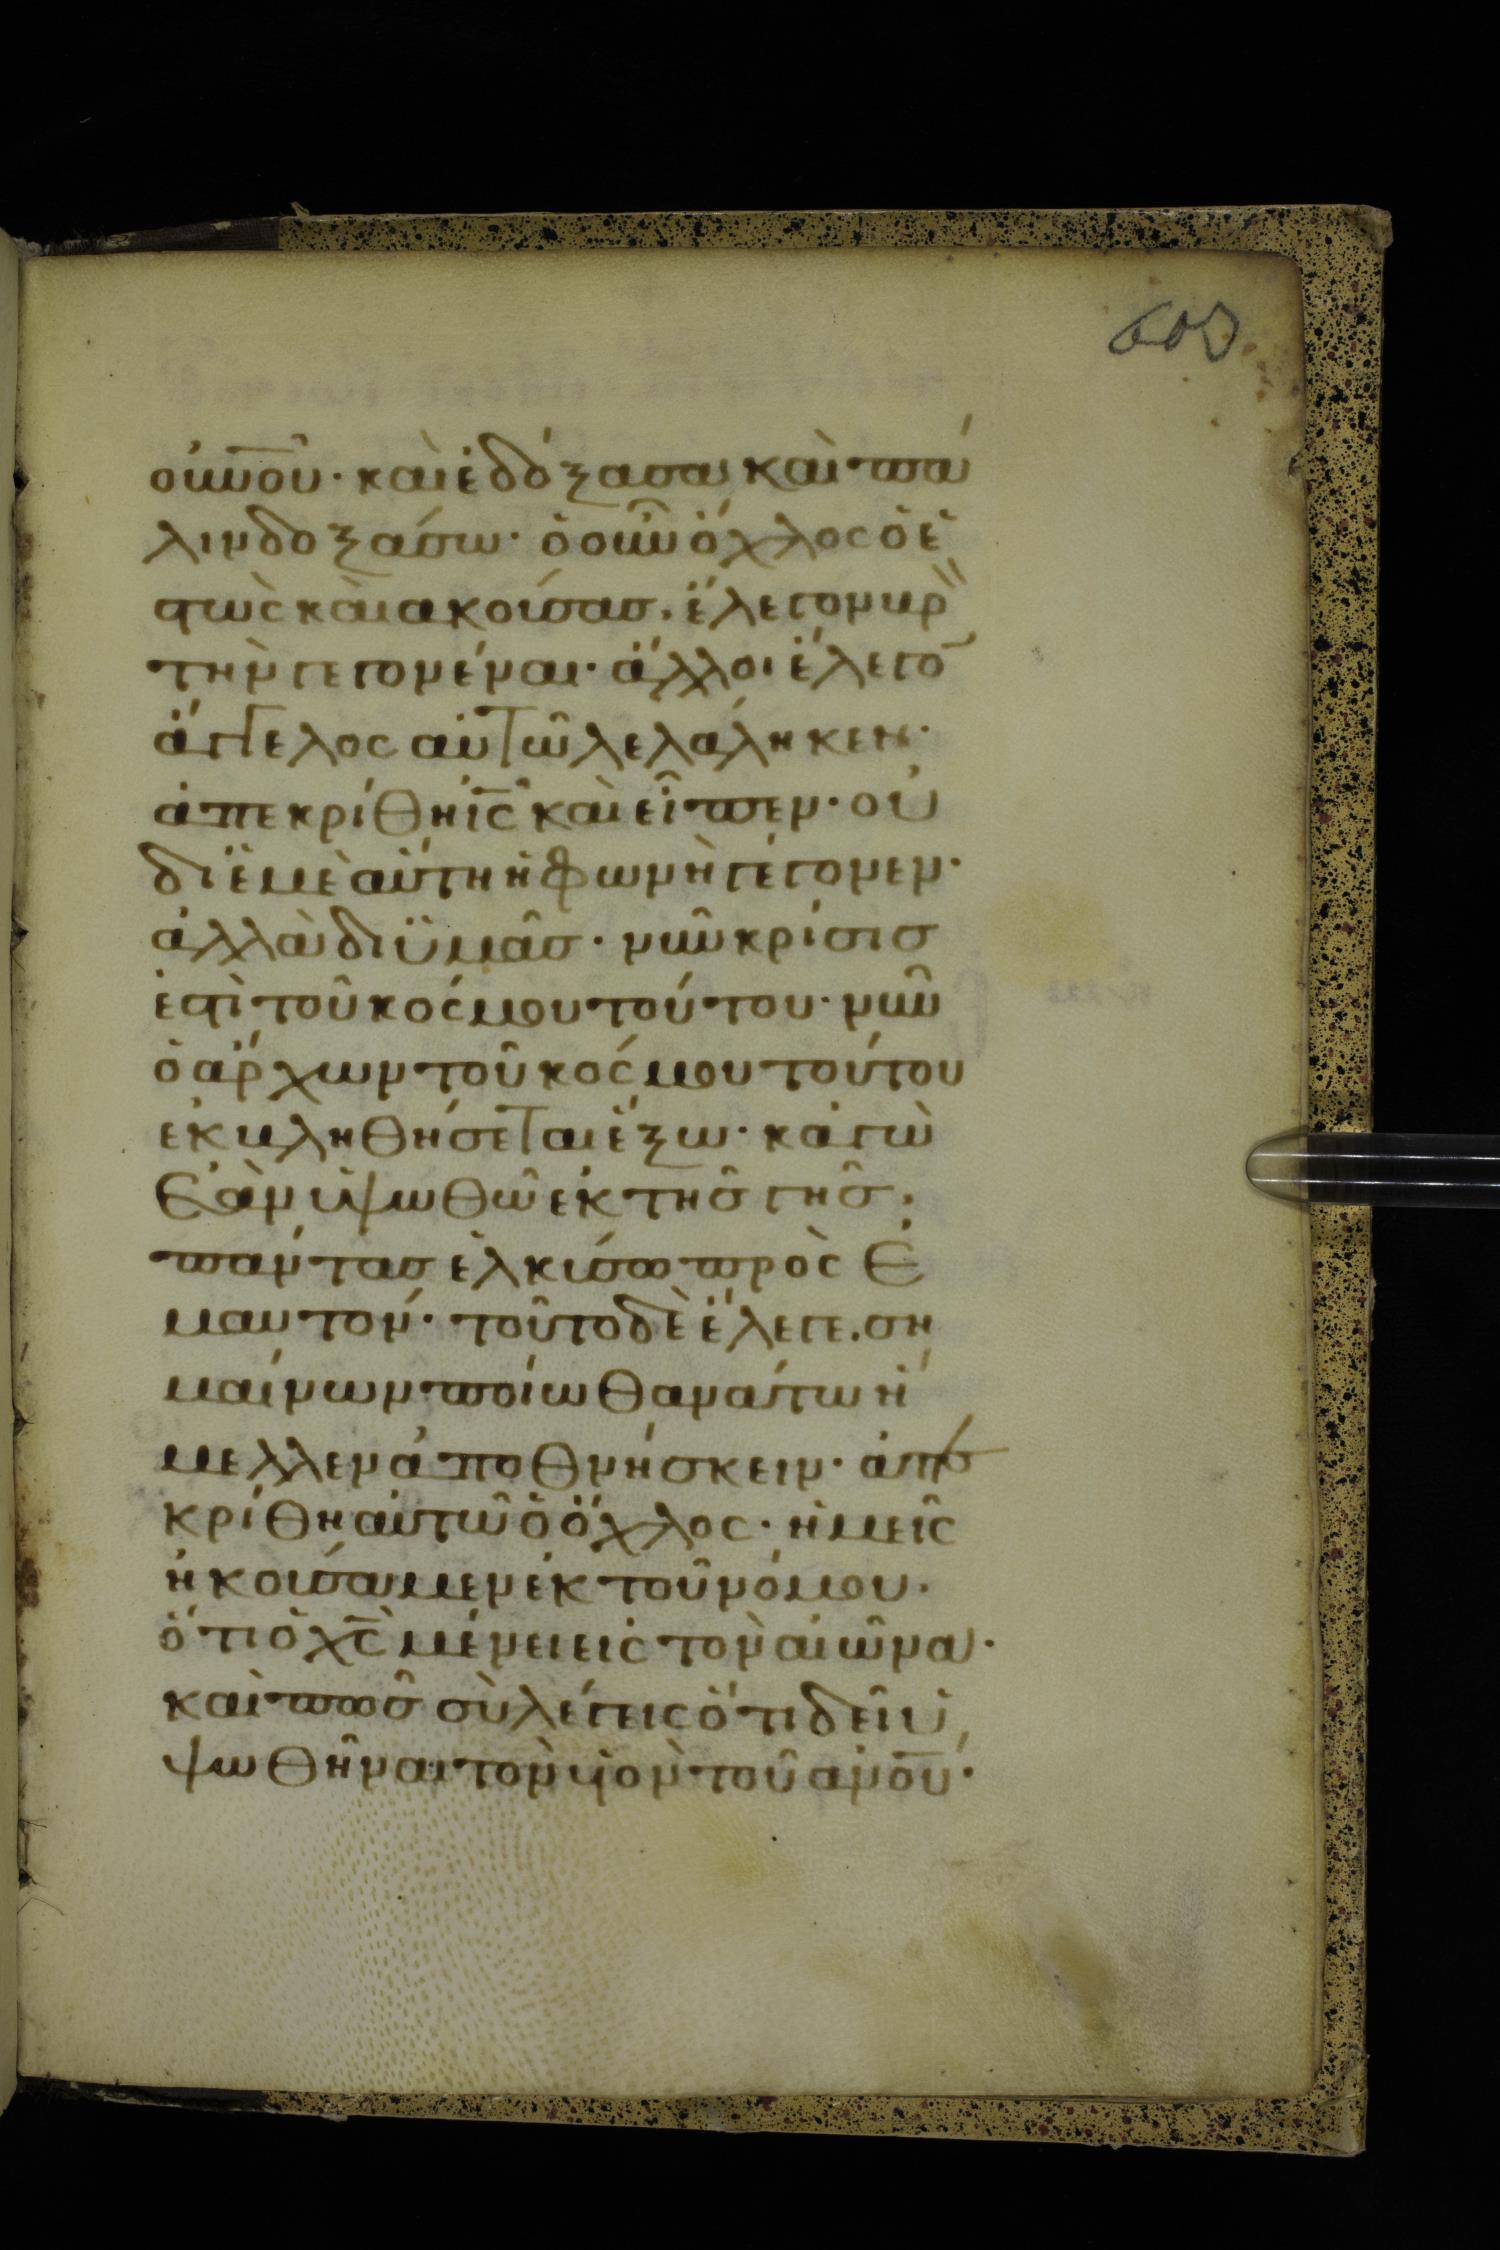 603
οὐνοῦ· καὶ ἐδόξασα καὶ πά
λιν δοξάσω· ὁ οὖν ὄχλος ὁ ἑ
στὼς καὶ ακούσας. ἔλεγον βρο̅
τὴν γεγονέναι· ἄλλοι ἔλεγο̅
ἄγγελος αὐτῶ λελάληκεν·
ἀπεκρίθη ἰ̅ς̅ καὶ εἶπεν· οὐ
δι ἐμὲ αὕτη ἡ φωνὴ γέγονεν·
ἀλλὰ δι ὑμᾶς· νῦν κρίσις
ἐστὶ τοῦ κόσμου τούτου· νῦν
ὁ ἄρχων τοῦ κόσμου τούτου
ἐκβληθήσεται ἔξω· κἀγὼ
Ἐὰν ὑψωθῶ ἐκ τῆς γῆς.
πάντας ἑλκύσω πρὸς Ἐ
μαυτόν· τοῦτο δὲ ἔλεγε. ση
μαίνων ποίω θανάτω ἤ
μελλεν ἀποθνήσκειν· ἀπε
κρίθη αὐτῶ ὁ ὄχλος· ἡμεῖς
ἠκούσαμεν ἐκ τοῦ νόμου·
ὅτι ὁ χ̅ς̅ μένει εἰς τὸν αἰῶνα·
καὶ πῶς σὺ λέγεις ὅτι δεῖ ὑ
ψωθῆναι τὸν υἱὸν τοῦ ἀνο̅υ̅·